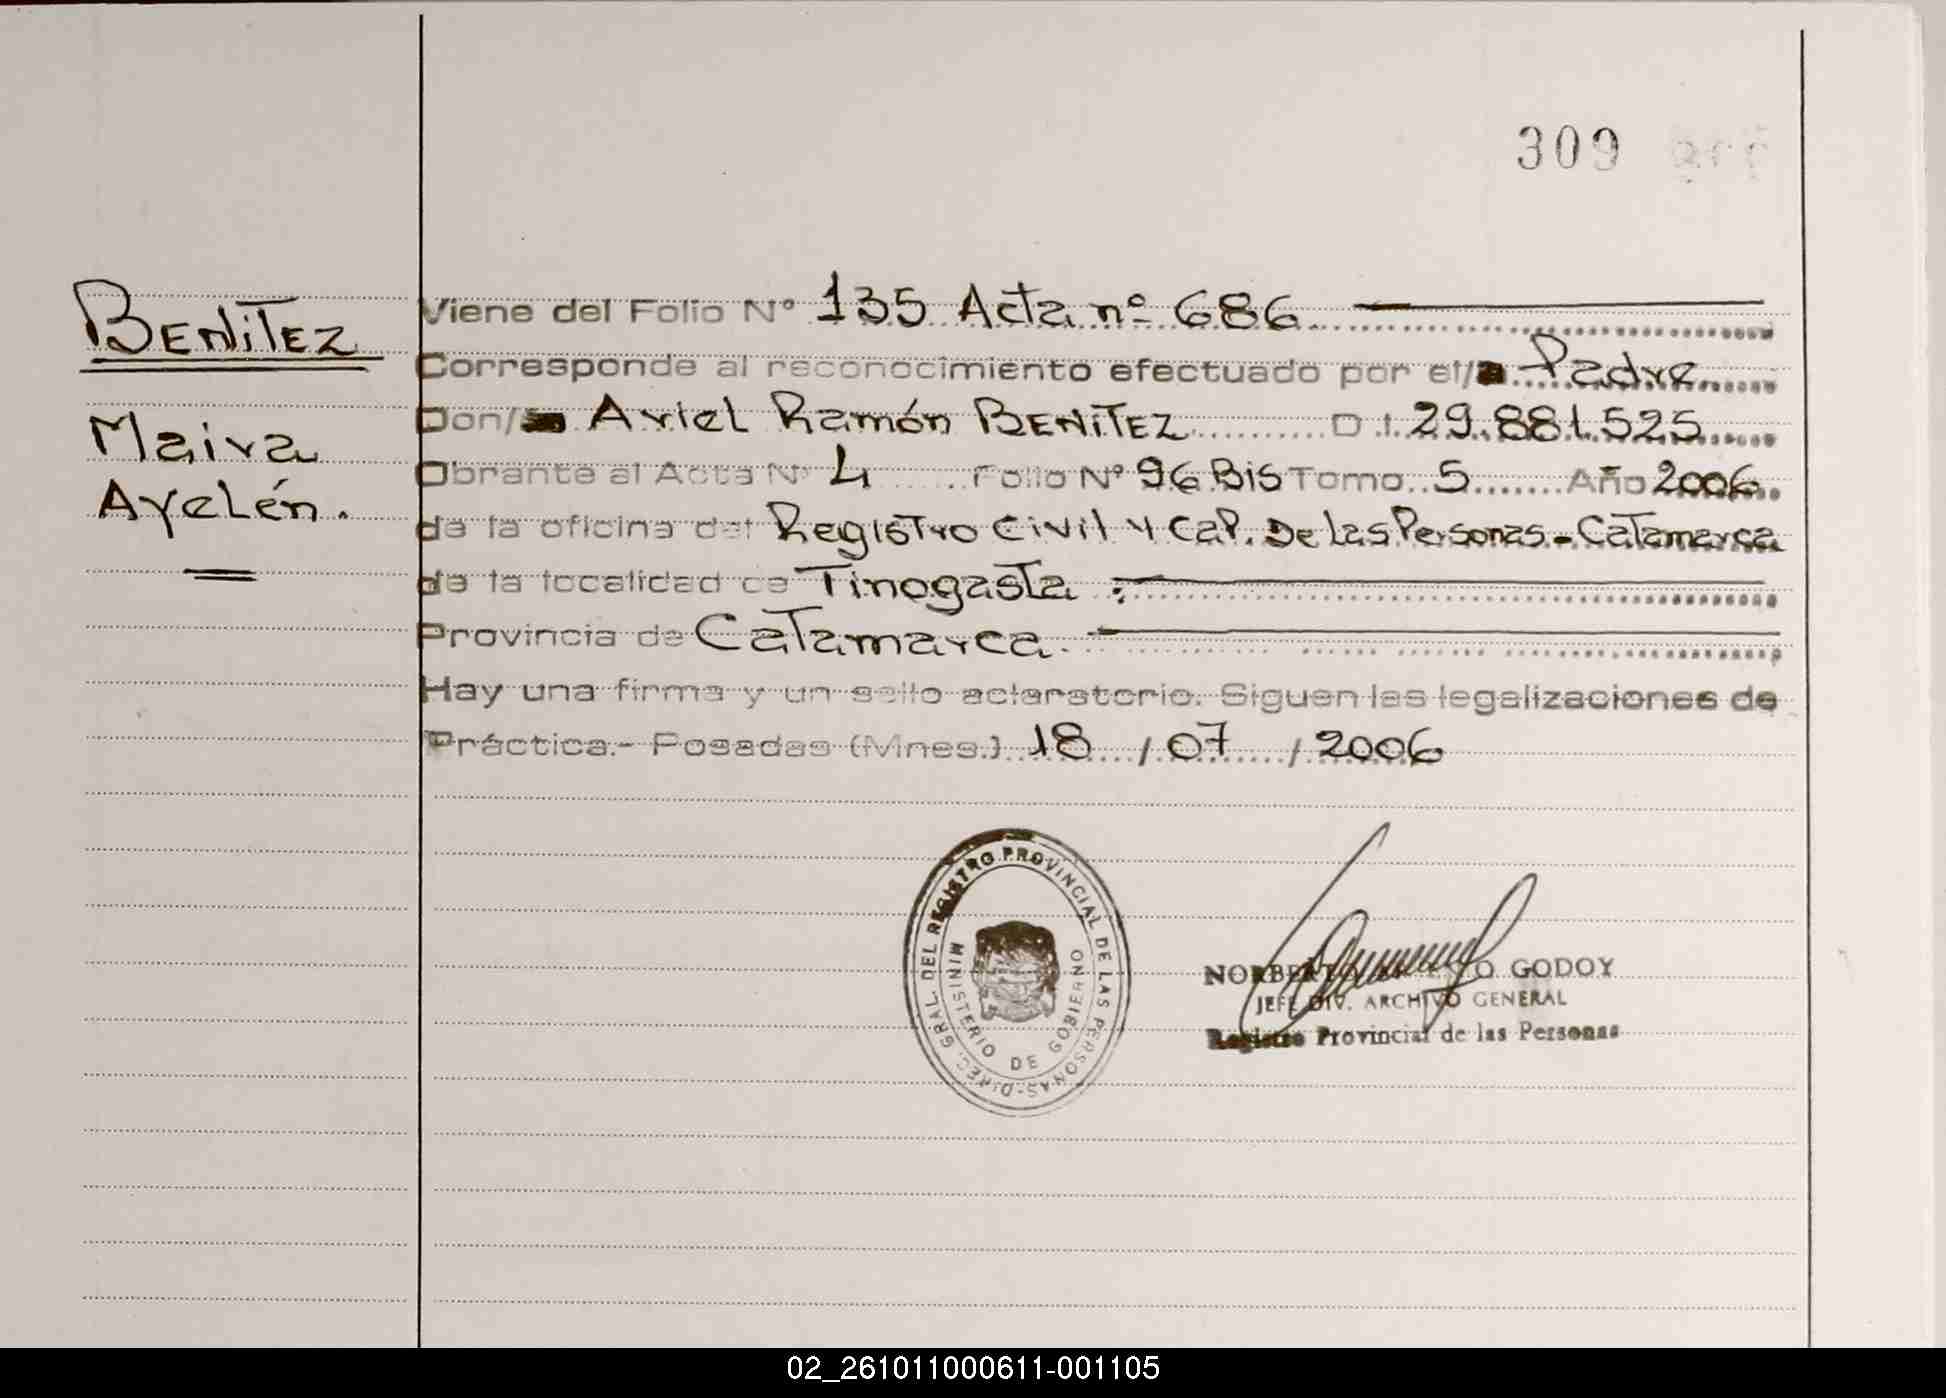 309
BENITEZ
Maira
Ayelén.
Viene del Folio Nº 135 Acta nº 686
Corresponde al reconocimiento efectuado por el/ Padre
Don/ Ariel Ramón BENITEZ D.I. 29.881.525
Obrante al Acta Nº 4 Folio Nº 96 Bis Tomo 5 Año 2006
de la oficina del Registro Civil y Cap. De las Personas - Catamarca
de la localidad de Tinogasta.
Provincia de Catamarca.
Hay una firma y un sello aclaratorio. Siguen las legalizaciones de
Práctica.- Posadas (Mnes.) 18 / 07 / 2006
DIREC. GRAL. DEL REGISTRO PROVINCIAL DE LAS PERSONAS
MINISTERIO DE GOBIERNO
GODOY
JEFE DIV. ARCHIVO GENERAL
Registro Provincial de las Personas
02_261011000611-001105